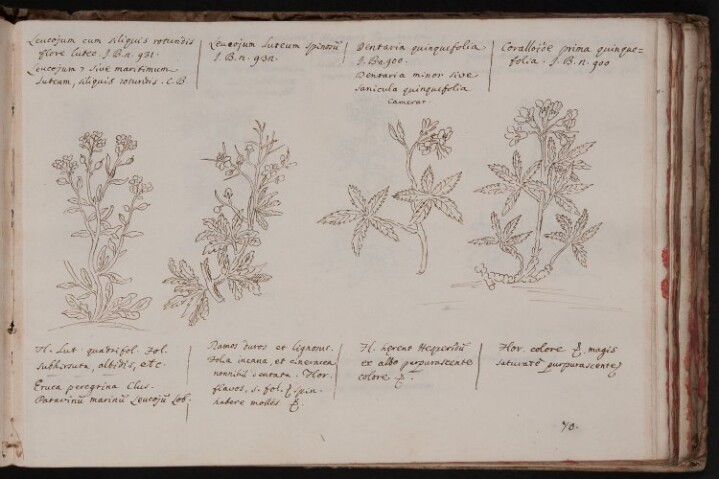 Leucojum cum siliquis rotundis
flore luteo. J.B.n. 931.
Leucojum sive maritimum
Luteum, siliquis rotundis. C.B
Leucojum Luteum spinosū
J.B.n. 932.
Dentaria quinquefolia
J.B.n.900.
Dentaria minor sive
Sanicula quinquefolia
Camerar
Coralloide prima quinque=
folia. J.B.n. 900
Fl. Lut quadrifol. Fol.
subhirsuta, albidis, etc.
Eruca peregrina Clus.
Patavinū marinū Leucojū Lob.
Ramos duros et lignosos.
Folia incana, et cineracea
nonnihil dentata. Flor.
flavos, 4. fol.
habere molles
Fl. herent Hesperidū
ex albo purpurascente
colore
Flor. colore magis
saturatē purpurascente
70.